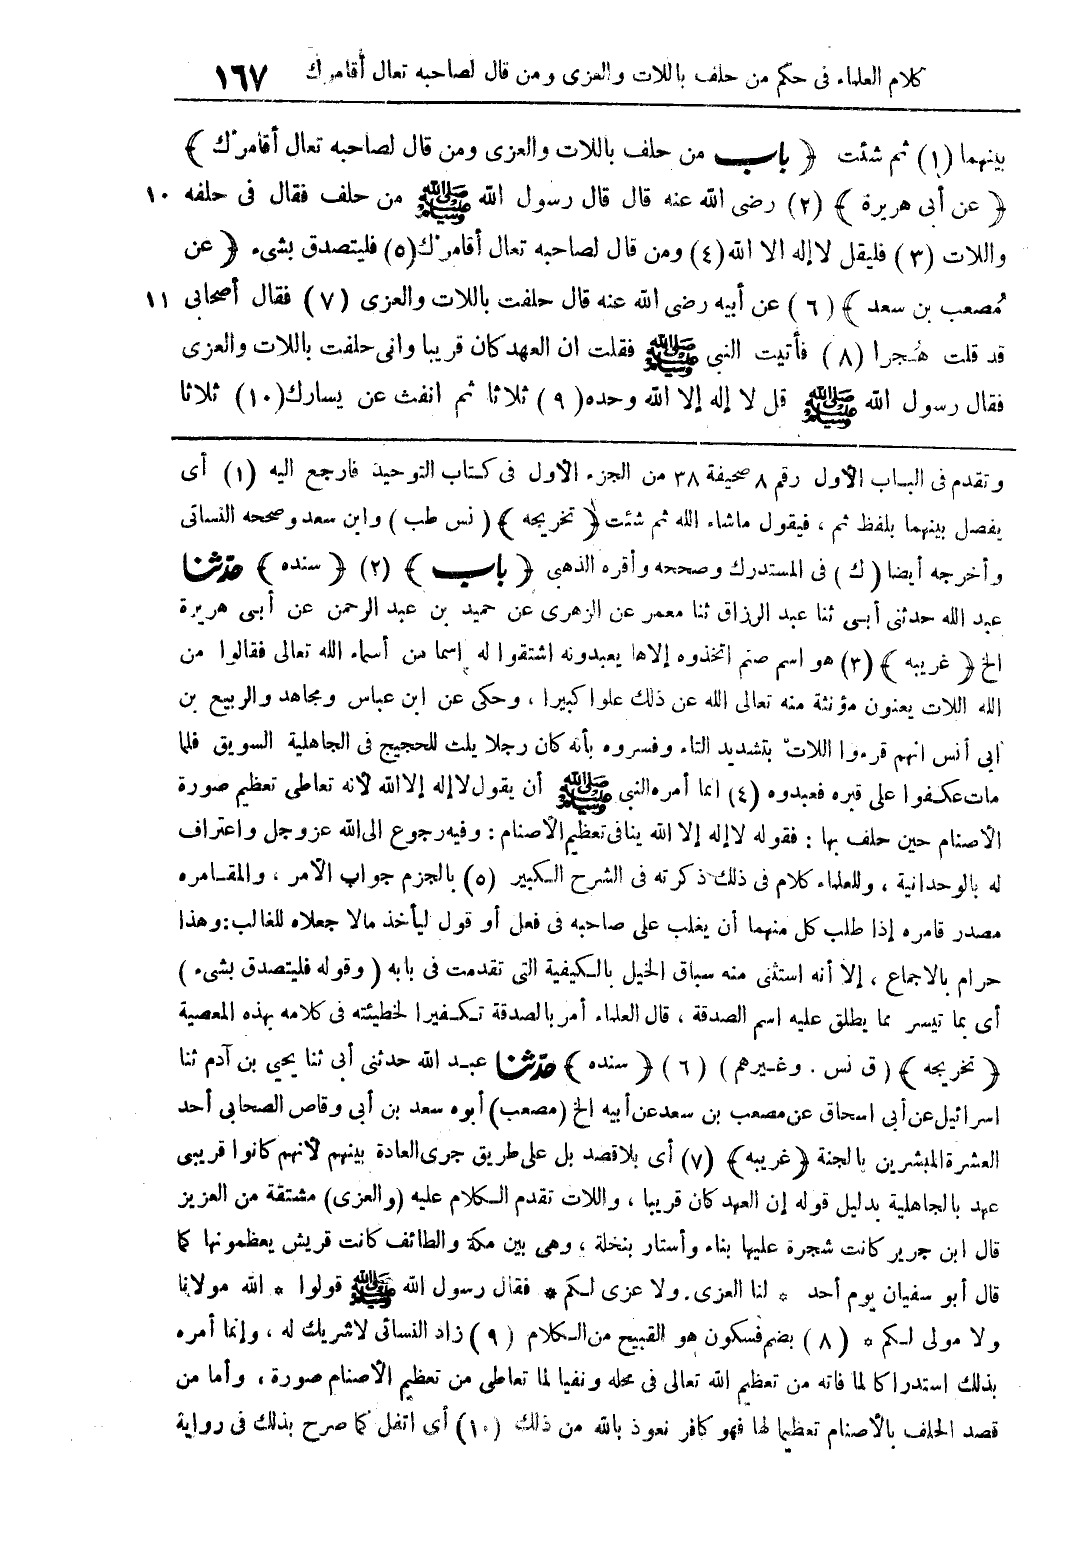 كلام العلماء فى حكم من حلف باللات والعزى ومن قال لصاحبه تعال أقامرك ١٦٧
بينهما (١) ثم شئت ﴿ باب من حلف باللات والعزى ومن قال لصاحبه تعال أقامرك ﴾
﴿ عن أبى هريرة ﴾ (٢) رضى الله عنه قال قال رسول الله ﷺ من حلف فقال فى حلفه ١٠
واللات (٣) فليقل لاإله الا الله (٤) ومن قال لصاحبه تعال أقامرك (٥) فليتصدق بشىء ﴿ عن
مُصعب بن سعد ﴾ (٦) عن أبيه رضى الله عنه قال حلفت باللات والعزى (٧) فقال أصحابى ١١
قد قلت هُجرا (٨) فأتيت النبى ﷺ فقلت ان العهد كان قريبا وانى حلفت باللات والعزى
فقال رسول الله ﷺ قل لا إله إلا الله وحده (٩) ثلاثا ثم انفث عن يسارك (١٠) ثلاثا
وتقدم فى الباب الأول رقم ٨ صحيفة ٣٨ من الجزء الأول فى كتاب التوحيد فارجع اليه (١) أى
يفصل بينهما بلفظ ثم ، فيقول ماشاء الله ثم شئت ﴿ تخريجه ﴾ (نس طب) وابن سعد وصححه النسائى
وأخرجه أيضا (ك) فى المستدرك وصححه وأقره الذهبى ﴿ باب ﴾ (٢) ﴿ سنده ﴾ حدّثنا
عبد الله حدثنى أبى ثنا عبد الرزاق ثنا معمر عن الزهرى عن حميد بن عبد الرحمن عن أبى هريرة
الخ ﴿ غريبه ﴾ (٣) هو اسم صنم اتخذوه إلاها يعبدونه اشتقوا له اسما من أسماء الله تعالى فقالوا من
الله اللات يعنون مؤنثة منه تعالى الله عن ذلك علوا كبيرا ، وحكى عن ابن عباس ومجاهد والربيع بن
أبى أنس انهم قرءوا اللاتّ بتشديد التاء وفسروه بأنه كان رجلا يلت للحجيج فى الجاهلية السويق فلما
مات عكفوا على قبره فعبدوه (٤) انما أمره النبى ﷺ أن يقول لاإله إلا الله لأنه تعاطى تعظيم صورة
الأصنام حين حلف بها : فقوله لاإله إلا الله ينافى تعظيم الأصنام : وفيه رجوع الى الله عزوجل واعتراف
له بالوحدانية ، وللعلماء كلام فى ذلك ذكرته فى الشرح الكبير (٥) بالجزم جواب الأمر ، والمقامره
مصدر قامره إذا طلب كل منهما أن يغلب على صاحبه فى فعل أو قول ليأخذ مالا جعلاه للغالب : وهذا
حرام بالاجماع ، إلا أنه استثنى منه سباق الخيل بالكيفية التى تقدمت فى بابه (وقوله فليتصدق بشىء)
أى بما تيسر مما يطلق عليه اسم الصدقة ، قال العلماء أمر بالصدقة تكفيرا لخطيئته فى كلامه بهذه المعصية
﴿ تخريجه ﴾ (ق نس . وغيرهم) (٦) ﴿ سنده ﴾ حدّثنا عبد الله حدثنى أبى ثنا يحيى بن آدم ثنا
اسرائيل عن أبى اسحاق عن مصعب بن سعد عن أبيه الخ (مصعب) أبوه سعد بن أبى وقاص الصحابى أحد
العشرة المبشرين بالجنة ﴿ غريبه ﴾ (٧) أى بلا قصد بل على طريق جرى العادة بينهم لأنهم كانوا قريبى
عهد بالجاهلية بدليل قوله إن العهد كان قريبا ، واللات تقدم الكلام عليه (والعزى) مشتقة من العزيز
قال ابن جرير كانت شجرة عليها بناء وأستار بنخلة ، وهى بين مكة والطائف كانت قريش يعظمونها كما
قال أبو سفيان يوم أحد * لنا العزى ولا عزى لكم * فقال رسول الله ﷺ قولوا * الله مولانا
ولا مولى لكم * (٨) بضم فسكون هو القبيح من الكلام (٩) زاد النسائى لاشريك له ، وإنما أمره
بذلك استدراكا لما فاته من تعظيم الله تعالى فى محله ونفيا لما تعاطى من تعظيم الأصنام صورة ، وأما من
قصد الحلف بالأصنام تعظيما لها فهو كافر نعوذ بالله من ذلك (١٠) أى اتفل كما صرح بذلك فى رواية